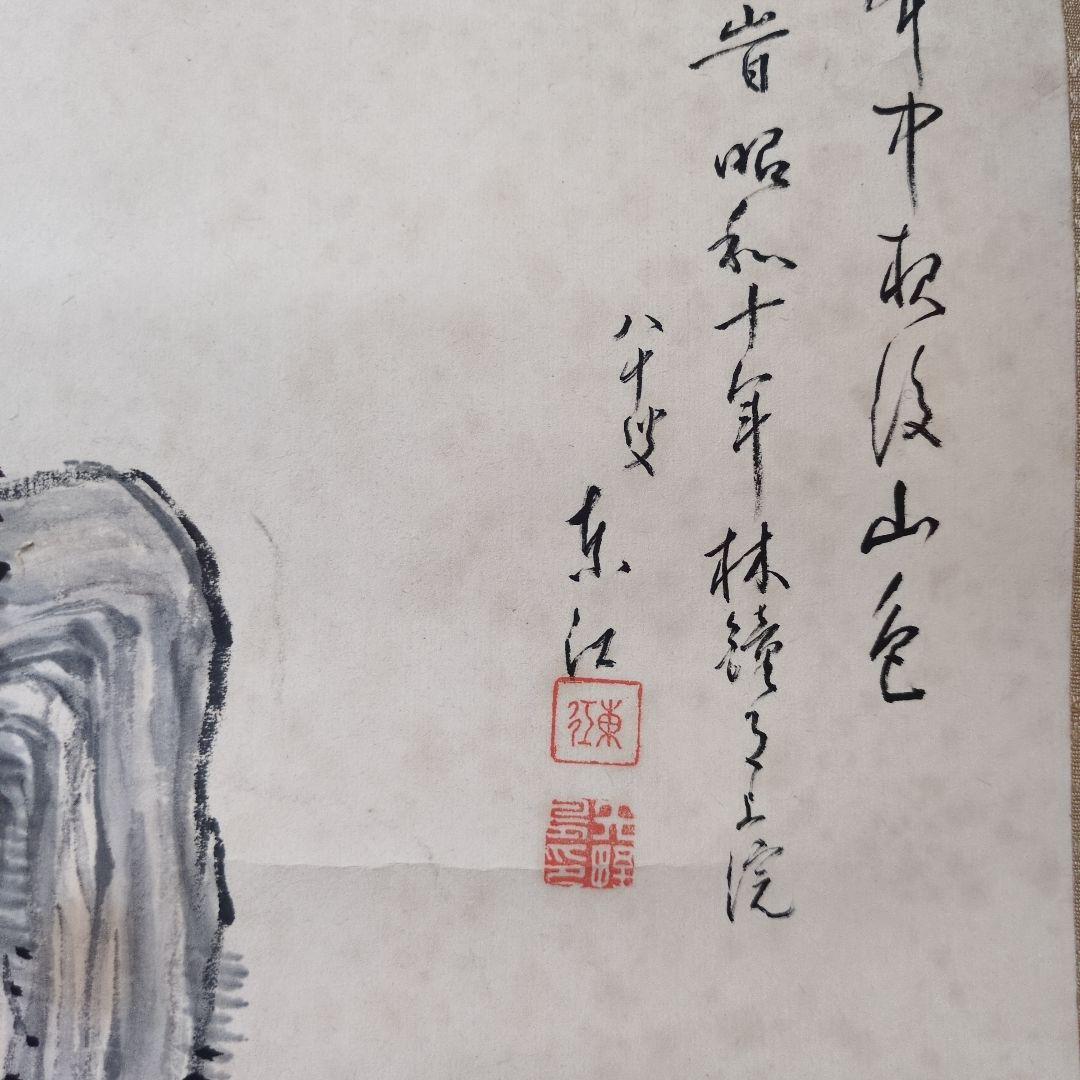 中夜後山色
昔昭和十年林鐘月上浣
八十叟
东江
東江